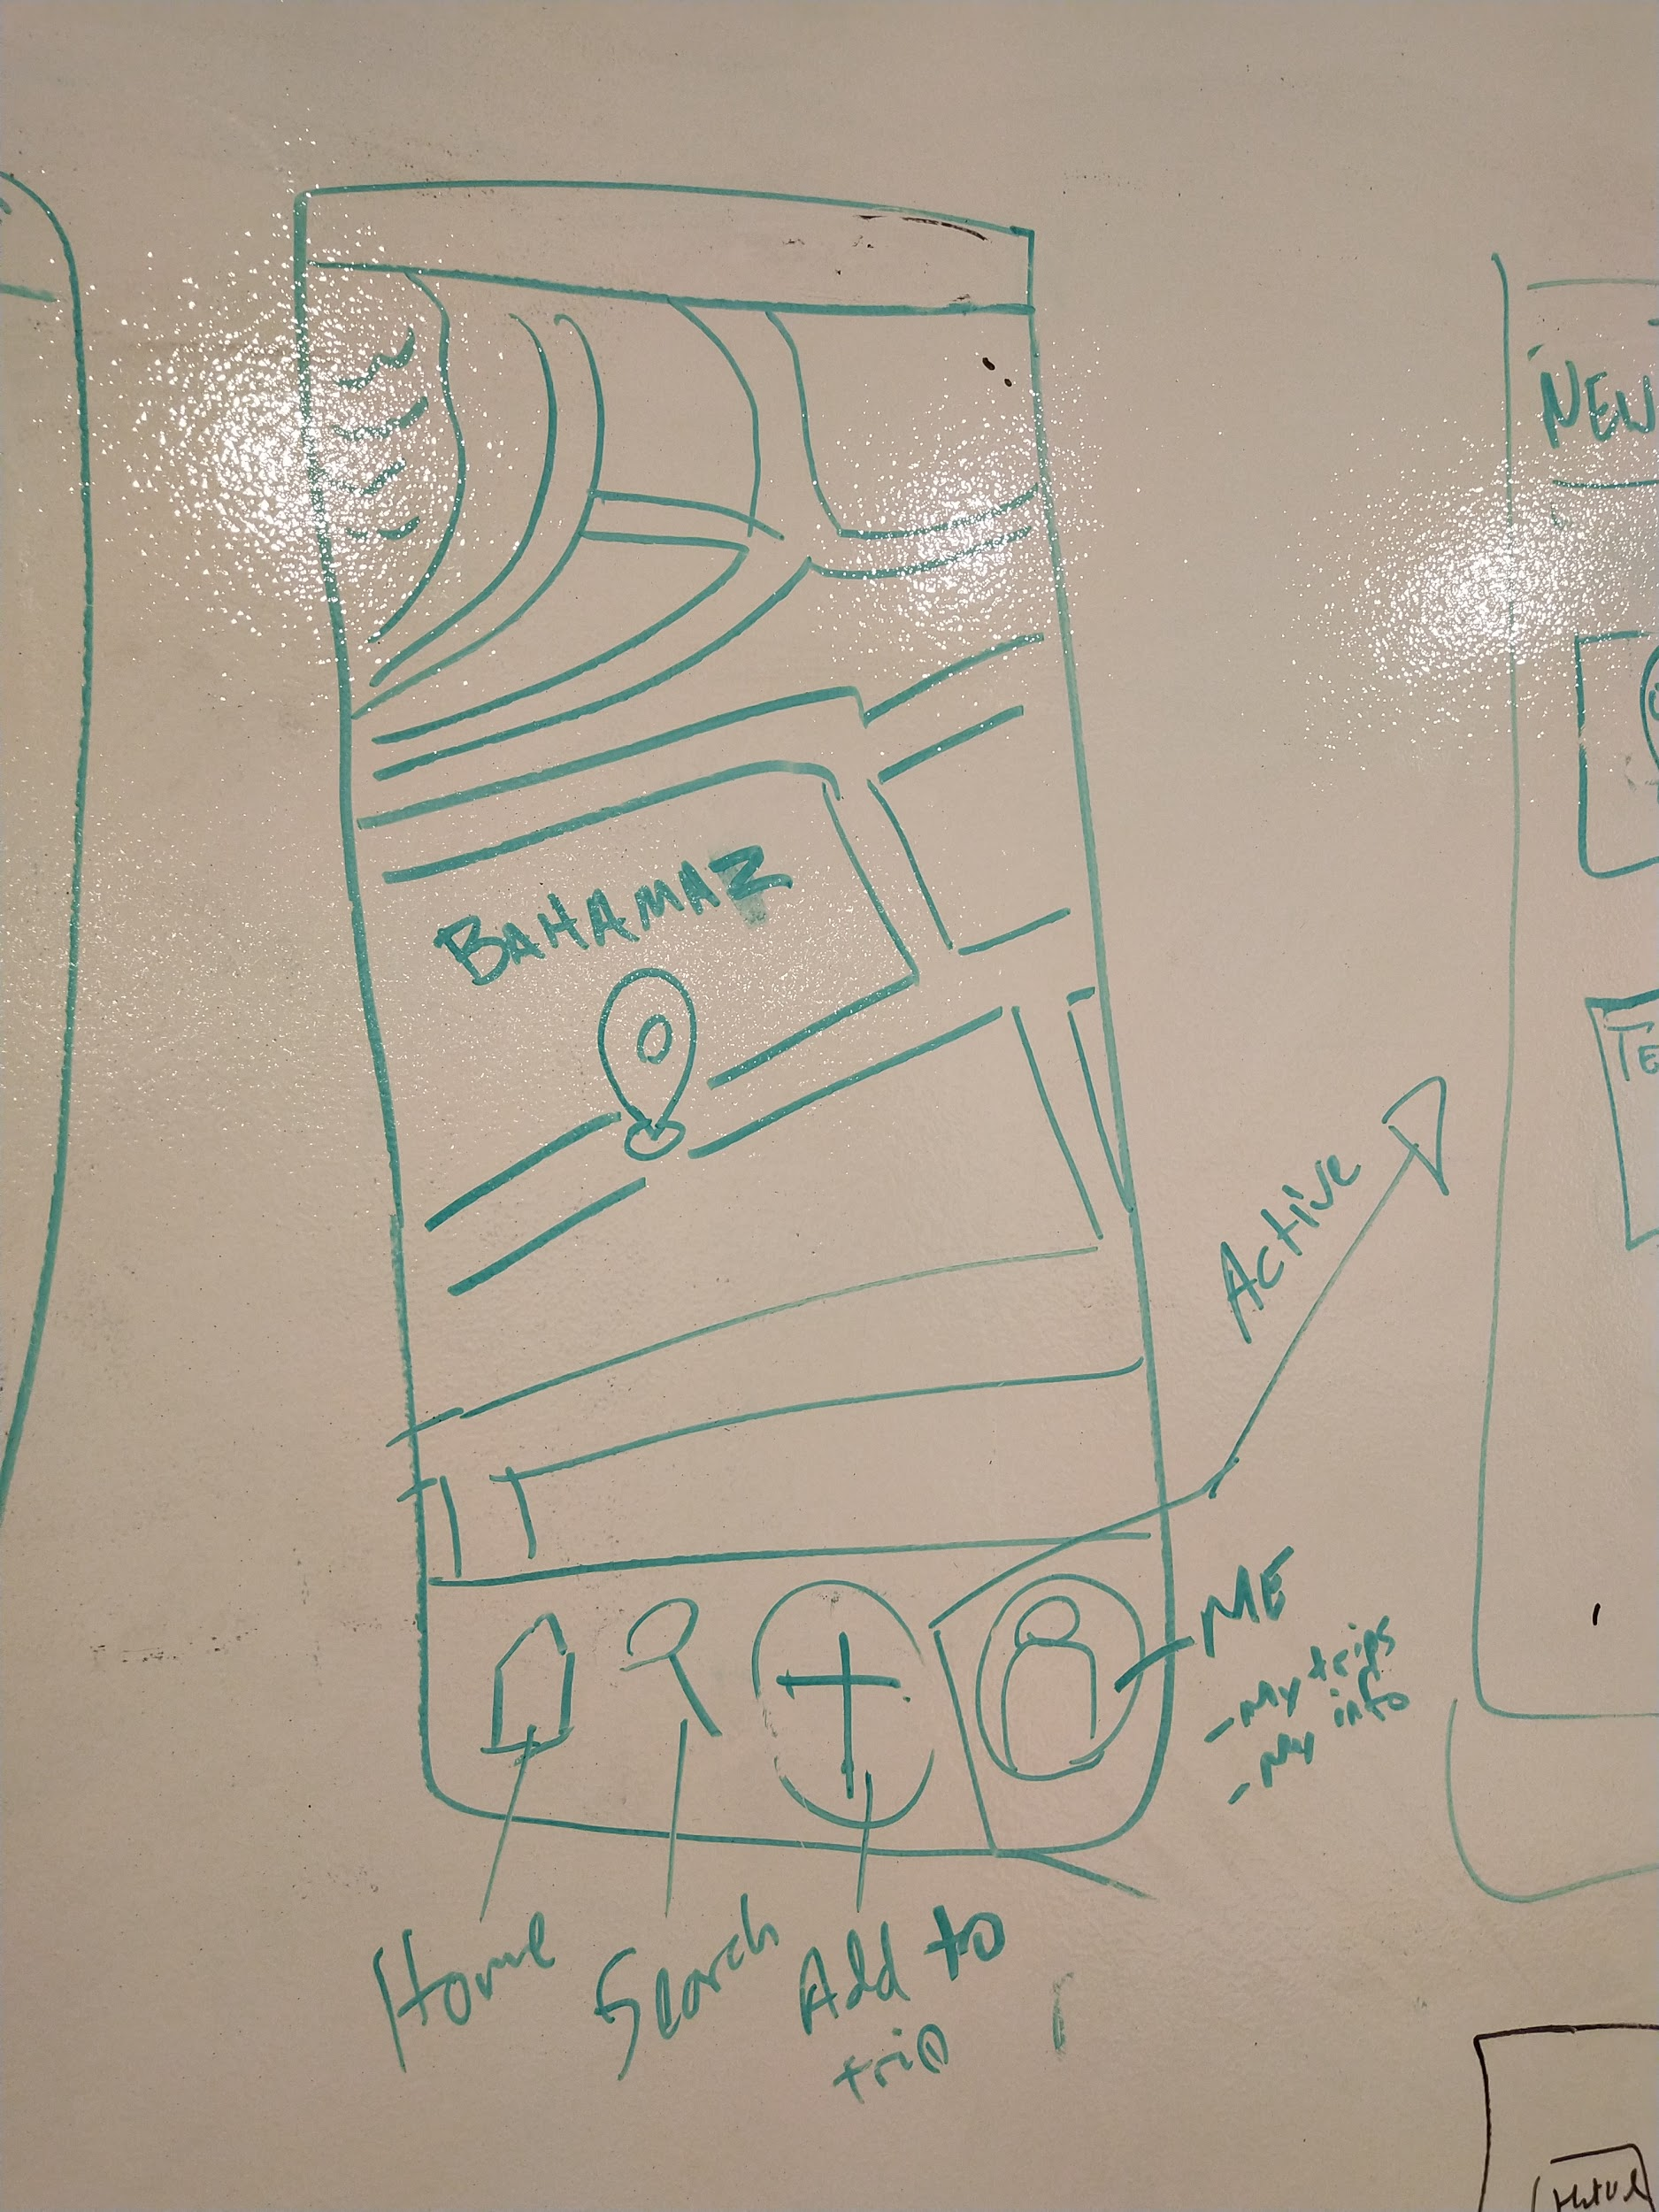 BAHAMAZ
NEW
TE
Active
ME
- My trips
- My info
Home
Search
Add to
trip